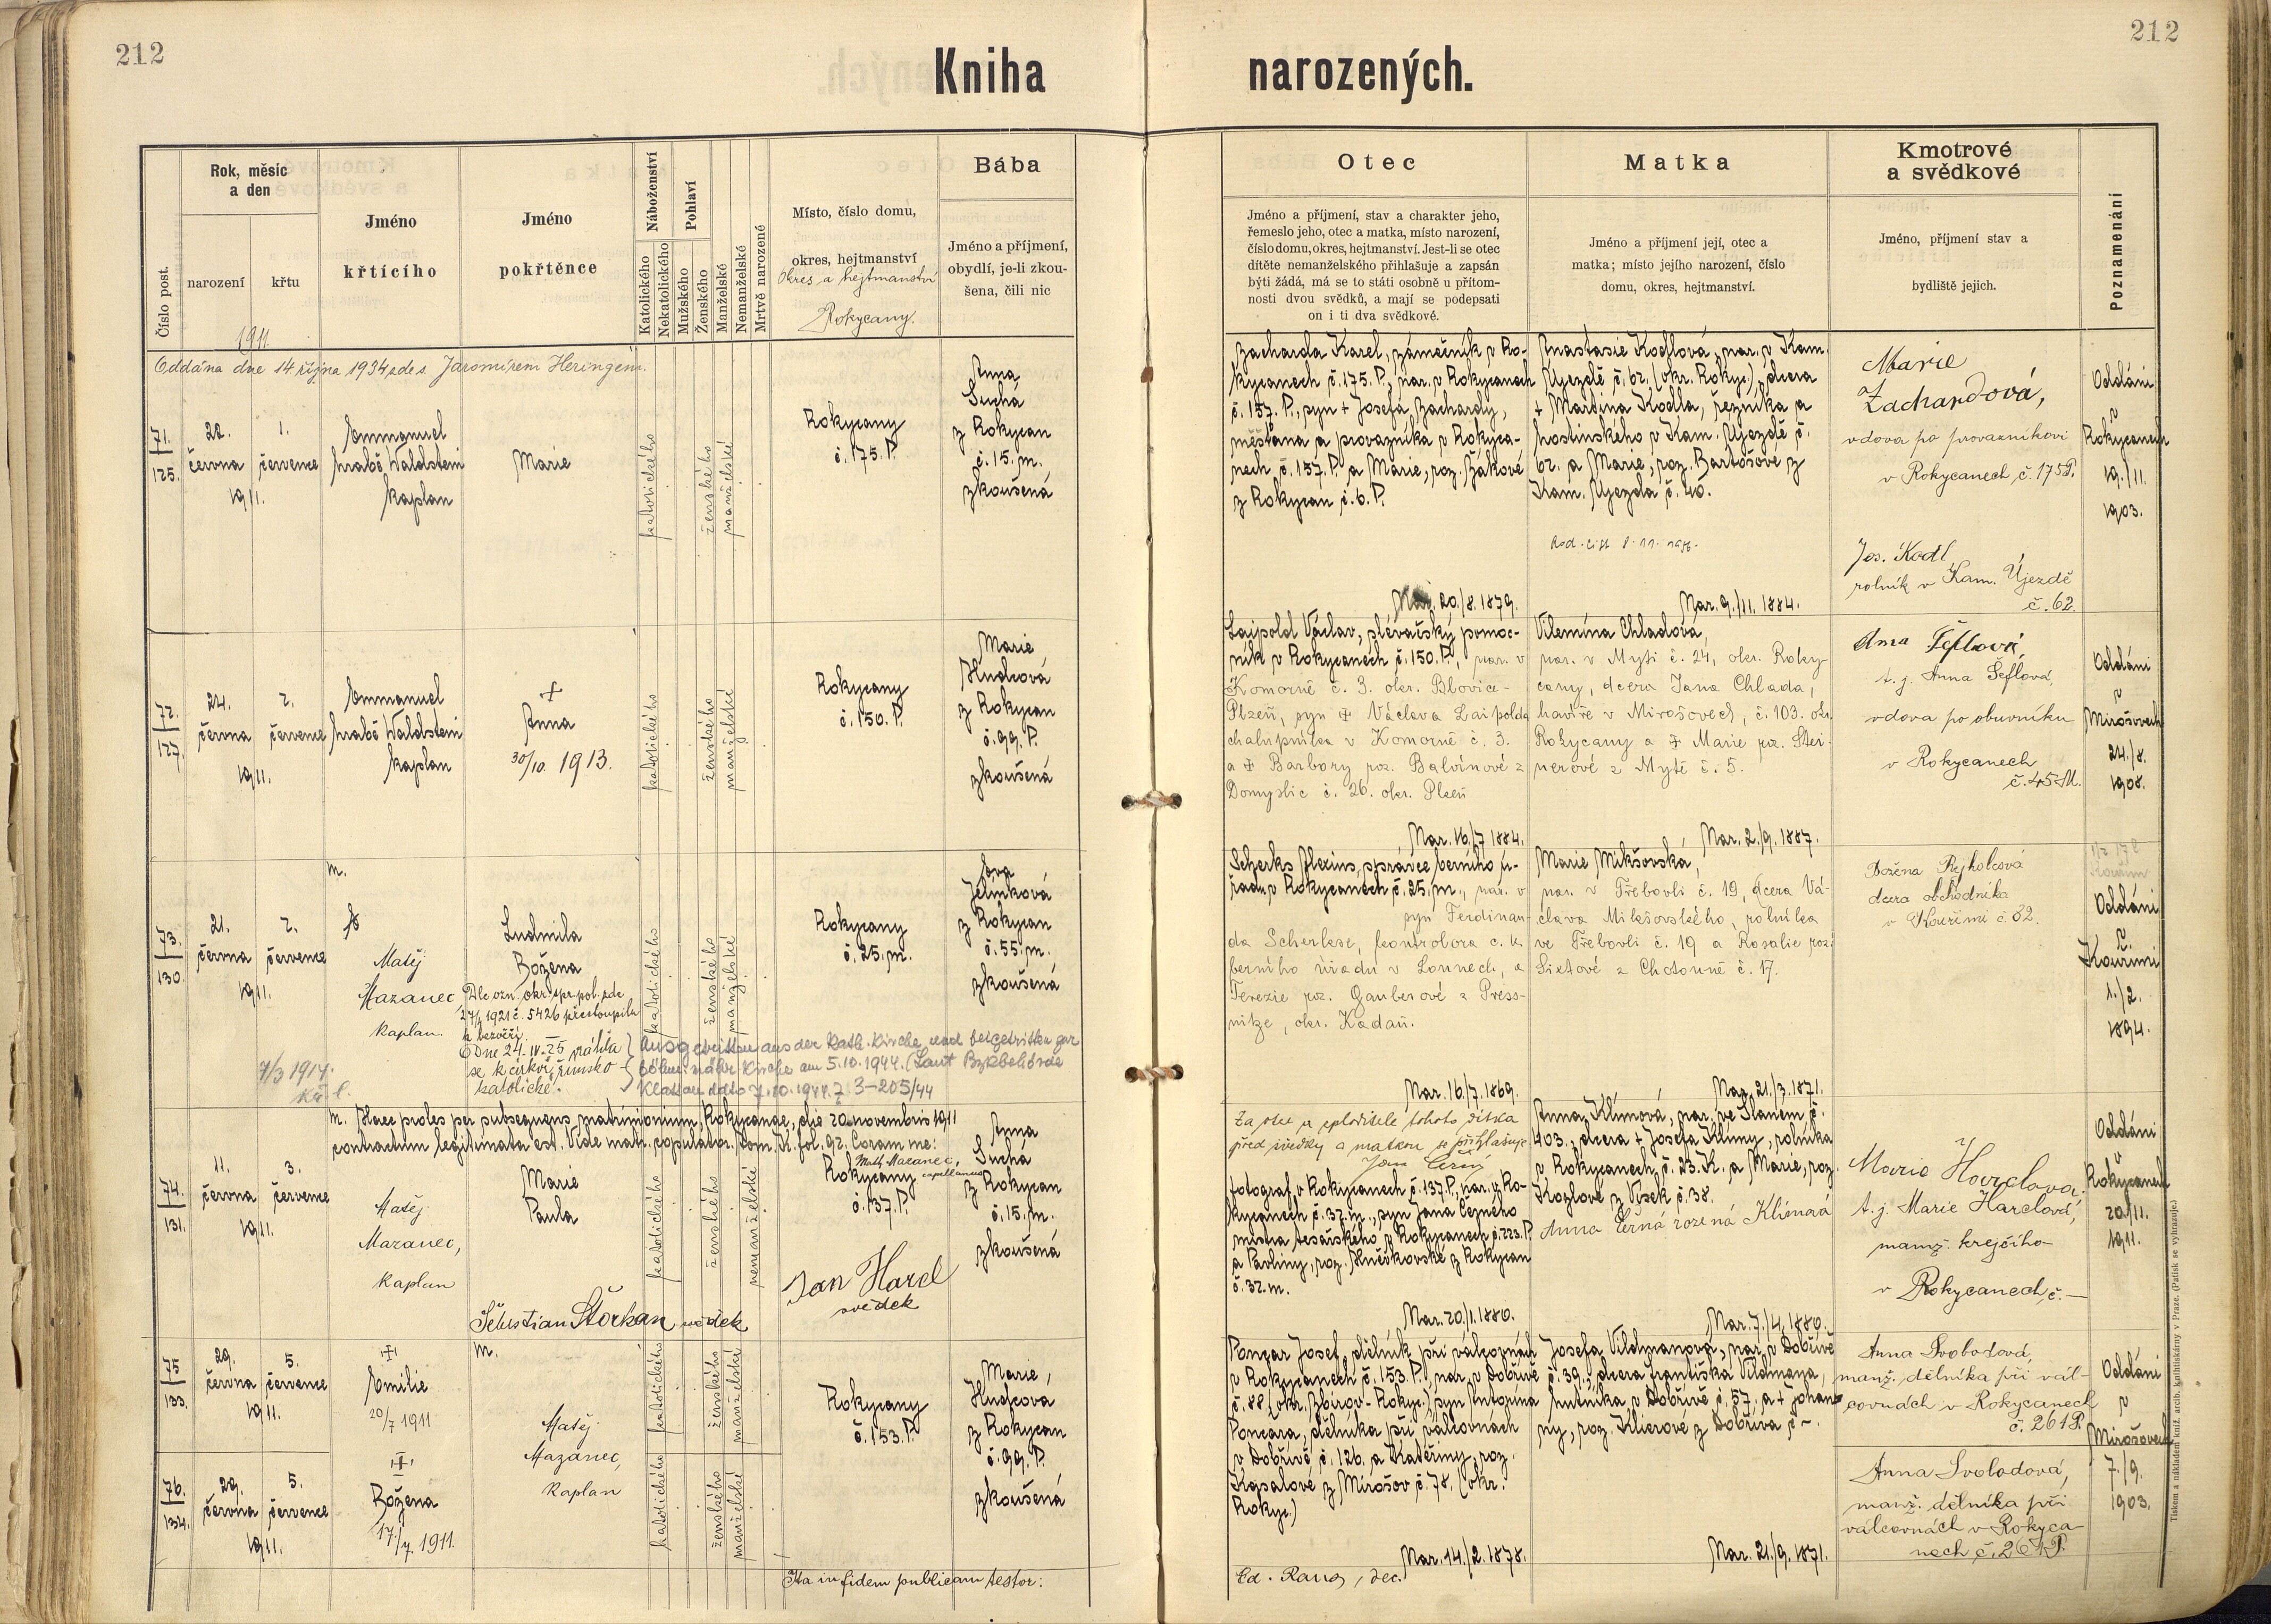 212
212
Kniha
narozených.
Číslo post.
Rok, měsíc
a den
narození
křtu
1911.
Jméno
křtícího
Jméno
pokřtěnce
Náboženství
Katolického
Nekatolického
Pohlaví
Mužského
Ženského
Manželské
Nemanželské
Mrtvě narozené
Místo, číslo domu,
okres, hejtmanství
Okres a hejtmanství
Rokycany.
Bába
Jméno a příjmení,
obydlí, je-li zkou-
šena, čili nic
Otec
Jméno a příjmení, stav a charakter jeho,
řemeslo jeho, otec a matka, místo narození,
číslo domu, okres, hejtmanství. Jest-li se otec
dítěte nemanželského přihlašuje a zapsán
býti žádá, má se to státi osobně u přítom-
nosti dvou svědků, a mají se podepsati
on i ti dva svědkové.
Matka
Jméno a příjmení její, otec a
matka; místo jejího narození, číslo
domu, okres, hejtmanství.
Kmotrové
a svědkové
Jméno, příjmení stav a
bydliště jejich.
Poznamenání
Oddána dne 14 října 1934 zde s Jaromírem Heringem.
71.
125.
22.
června
1911.
1.
července
Emmanuel
hrabě Waldstein
kaplan
Marie
katolického
ženského
manželské
Rokycany
č. 175. P.
Anna
Suchá
z Rokycan
č. 15. m.
zkoušená
Zacharda Karel, zámečník v Ro-
kycanech č. 175. P., nar. v Rokycanech
č. 157. P., syn + Josefa Zachardy,
měšťana a provazníka v Rokyca-
nech č. 157. P. a Marie, roz. Žákové
z Rokycan č. 6. P.
Nar. 20./8. 1879.
Anastasie Kodlová, nar. v Kam.
Újezdě č. 62. (okr. Rokyc.), dcera
+ Martina Kodla, řezníka a
hostinského v Kam. Újezdě č.
62. a Marie, roz. Bartošové z
Kam. Újezda č. 40.
Rod. list
Nar. 9./11. 1884.
Marie
Zachardová,
vdova po provazníkovi
v Rokycanech č. 175 P.
Jos. Kodl
rolník v Kam. Újezdě
č. 62.
Oddáni
v
Rokycanech
19./11.
1903.
72.
127.
24.
června
1911.
2.
července
Emmanuel
hrabě Waldstein
kaplan
+
Anna
30/10. 1913.
katolického
ženského
manželské
Rokycany
č. 150. P.
Marie
Hudcová
z Rokycan
č. 99. P.
zkoušená
Laipold Václav, slévačský pomoc-
ník v Rokycanech č. 150. P., nar. v
Komorně č. 3. okr. Blovice-
Plzeň, syn + Václava Laipolda
chalupníka v Komorně č. 3.
a + Barbory roz. Balvínové z
Domyslic č. 26. okr. Plzeň
Nar. 16./7 1884.
Vilemína Chladová,
nar. v Mýti č. 24, okr. Roky
cany, dcera Jana Chlada,
havíře v Mirošovech, č. 103. okr.
Rokycany a + Marie roz. Stei-
nerové z Mýtě č. 5.
Nar. 2./9. 1887.
Anna Šeflová,
t. j. Anna Šeflová,
vdova po obuvníku
v Rokycanech
č. 45 M.
Oddáni
v
Mirošovech
24./8.
1908.
73.
130.
21.
června
1911.
2.
července
m.
Matěj
Mazanec,
kaplan.
7/3 1914.
Ludmila
Božena
Dle ozn. okr. spr. pol. zde
1921 č. 5426 přestoupila
k bezvěří.
Dne 24. IV. 25 vrátila
se k církvi římsko-
katolické.
Ausgetreten aus der kath. Kirche und beigetreten zur
böhm. mähr. Kirche am 5.10.1944. (Laut Bezbehörde
Klattau ddto 7.10.1944. Z 3-205/44
katolického
ženského
manželské
Rokycany
č. 25. m.
Eva
Jelínková
z Rokycan
č. 55. m.
zkoušená
Scherks Alexius, správce berního ú-
řadu v Rokycanech č. 25. m., nar. v
syn Ferdinan-
da Scherkse, kontrolora c. k.
berního úřadu v Lounech, a
Terezie roz. Gauberové z Press-
nitze, okr. Kadaň.
Nar. 16./7. 1869.
Marie Mikšovská,
nar. v Třebovli č. 19, dcera Vá-
clava Mikšovského, rolníka
ve Třebovli č. 19 a Rosalie roz.
Sixtové z Chotouně č. 17.
Nar. 21./3. 1871.
Božena Rejholcová
dcera obchodníka
v Kouřimi č. 32.
Oddáni
v
Kouřimi
1./2.
1894.
m. Haec proles per subsequens matrimonium, Rokycanae, die 20. novembris 1911
contractum legitimata est. Vide matr. copulator. tom. K. fol. 92. Coram me:
Math. Mazanec,
capellanus
74.
131.
11.
června
1911.
3.
července
Matěj
Mazanec,
kaplan
Marie
Paula
katolického
ženského
nemanželské
Rokycany
č. 137. P.
Anna
Suchá
z Rokycan
č. 15. m.
zkoušená
Jan Harcl
svědek
Šebestian Štorkan svědek
Za otce a zploditele tohoto dítka
před svědky a matkou se přihlašuje
Jan Černý
fotograf v Rokycanech č. 137. P., nar. v Ro-
kycanech č. 32. m., syn Jana Černého
mistra tesařského v Rokycanech č. 223. P.
a Pavlíny, roz. Hněvkovské z Rokycan
č. 32. m.
Nar. 20./1. 1880.
Anna Klímová, nar. ve Slaném č.
403., dcera + Josefa Klímy, rolníka
v Rokycanech č. 23. K. a Marie, roz.
Kozlové z Vísek č. 38.
Anna Černá rozená Klímová
Nar. 7./4. 1886.
Marie Harclová,
t. j. Marie Harclová,
manž. krejčího
v Rokycanech, č. —
Oddáni
v
Rokycanech
20./11.
1911.
75
133.
29.
června
1911.
5.
července
+
Emilie
20/7 1911
m.
Matěj
Mazanec,
kaplan
katolického
ženského
manželské
Rokycany
č. 153. P.
Marie
Hudcová
z Rokycan
č. 99. P.
zkoušená
Poncar Josef, dělník při válcovnách
v Rokycanech č. 153. P., nar. v Dobřívě
č. 88 (okr. Zbirov-Rokyc.) syn Antonína
Poncara, dělníka při válcovnách
v Dobřívě č. 126. a Kateřiny, roz.
Kasalové z Mirošov č. 78. (okr.
Rokyc.)
Nar. 14./2. 1878.
Josefa Vildmanová, nar. v Dobřívě
č. 39., dcera Františka Vildmana,
hutníka v Dobřívě č. 57. a + Johan-
ny, roz. Klierové z Dobříva č –.
Nar. 21./9. 1871.
Anna Svobodová,
manž. dělníka při vál-
covnách v Rokycanech
č. 261 P.
Oddáni
v
Mirošovech
7./9.
1903.
76.
134.
29.
června
1911.
5.
července
+
Božena
17./7. 1911.
katolického
ženského
manželské
Anna Svobodová,
manž. dělníka při
válcovnách v Rokyca-
nech č. 261 P.
Ita in fidem publicam testor:
Ed. Raus, dec.
Tiskem a nákladem kníž. arcib. knihtiskárny v Praze. (Patisk se vyhrazuje.)